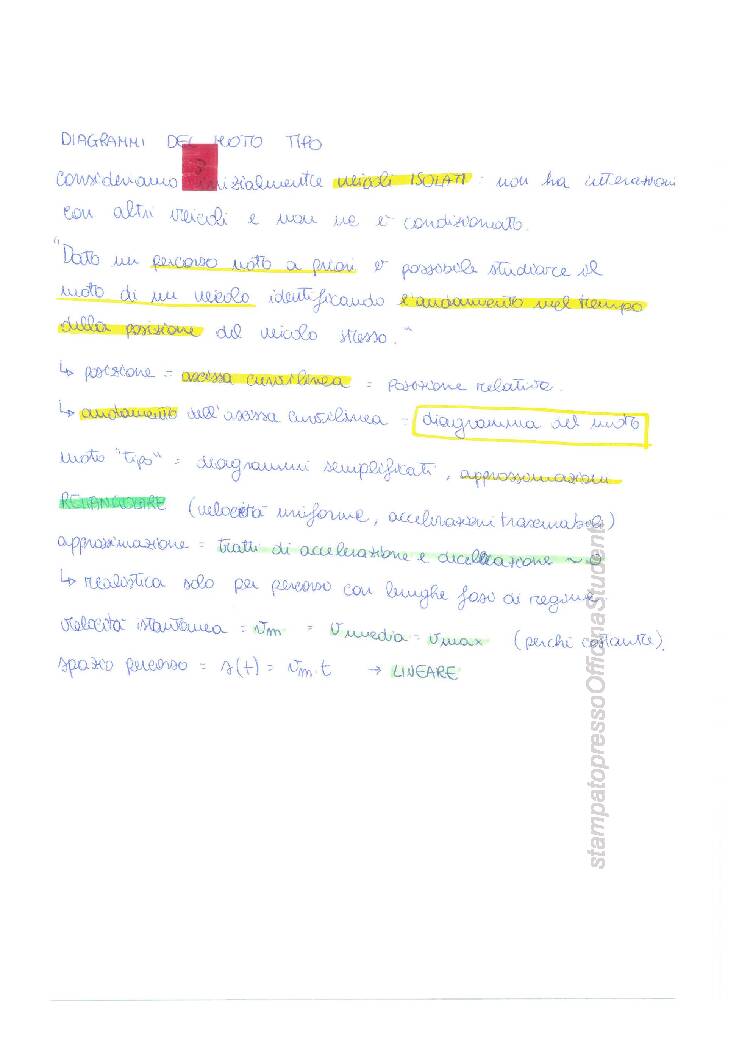 DIAGRAMMI DEL MOTO TIPO
consideriamo inizialmente veicoli ISOLATI: non ha interazioni
con altri veicoli e non ne è condizionato.
"Dato un percorso noto a priori è possibile studiare il
moto di un veicolo identificando l'andamento nel tempo
della posizione del veicolo stesso."
↳ posizione = ascissa curvilinea = posizione relativa.
↳ andamento dell'ascissa curvilinea = diagramma del moto
moto "tipo" = diagrammi semplificati, approssimazioni
RETTANGOLARE (velocità uniforme, accelerazioni trascurabili)
approssimazione = tratti di accelerazione e decelerazione ~ 0
↳ realistica solo per percorso con lunghe fasi di regime
velocità istantanea = vm = vmedia = vmax (perché costante).
spazio percorso = s(t) = vm·t → LINEARE
stampatopressoOfficinaStudenti